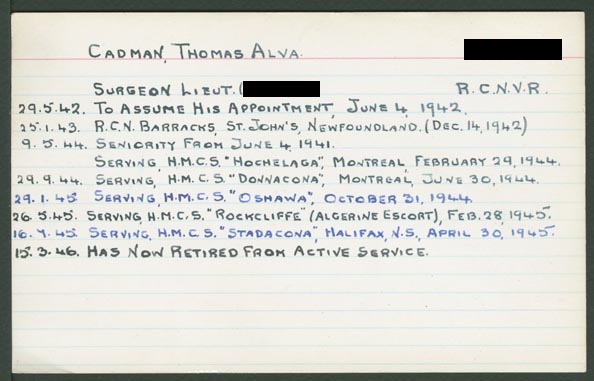 CADMAN, THOMAS ALVA.
SURGEON LIEUT. ( R.C.N.V.R.
29.5.42. TO ASSUME HIS APPOINTMENT, JUNE 4, 1942.
25.1.43. R.C.N. BARRACKS, ST. JOHN'S, NEWFOUNDLAND. (DEC. 14, 1942)
9.5.44. SENIORITY FROM JUNE 4, 1941.
SERVING, H.M.C.S. "HOCHELAGA", MONTREAL, FEBRUARY 29, 1944.
29.9.44. SERVING, H.M.C.S. "DONNACONA", MONTREAL, JUNE 30, 1944.
29.1.45. SERVING, H.M.C.S. "OSHAWA", OCTOBER 31, 1944.
26.5.45. SERVING H.M.C.S. "ROCKCLIFFE" (ALGERINE ESCORT), FEB. 28, 1945.
16.7.45. SERVING, H.M.C.S. "STADACONA", HALIFAX, N.S., APRIL 30, 1945.
15.3.46. HAS NOW RETIRED FROM ACTIVE SERVICE.